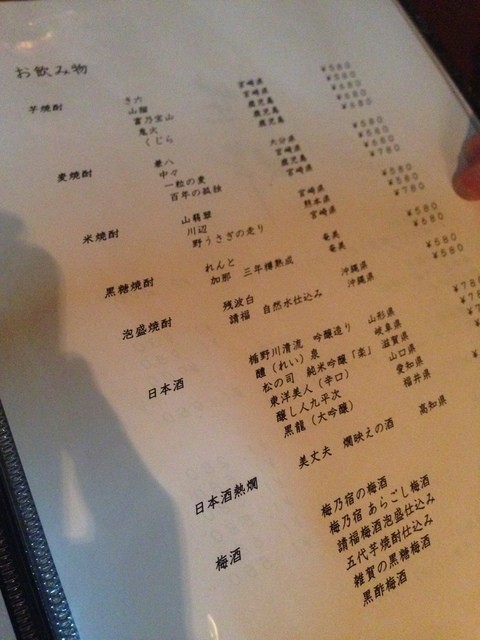 お飲み物
芋焼酎 き六 宮崎県 ¥580
山猫 宮崎県 ¥580
富乃宝山 鹿児島 ¥680
鬼火 鹿児島 ¥580
くじら 鹿児島 ¥680
麦焼酎 兼八 大分県 ¥680
中々 宮崎県 ¥580
一粒の麦 鹿児島 ¥680
百年の孤独 宮崎県 ¥780
米焼酎 山翡翠 宮崎県 ¥580
川辺 熊本県 ¥580
野うさぎの走り 宮崎県 ¥780
黒糖焼酎 れんと 奄美 ¥580
加那 三年樽熟成 奄美 ¥680
泡盛焼酎 残波白 沖縄県 ¥580
請福 自然水仕込み 沖縄県 ¥580
日本酒 楯野川清流 吟醸造り 山形県
醴(れい)泉 岐阜県
松の司 純米吟醸「楽」 滋賀県
東洋美人(辛口) 山口県
醸し人九平次 愛知県
黒龍(大吟醸) 福井県
日本酒熱燗 美丈夫 燗映えの酒 高知県
梅酒 梅乃宿の梅酒
梅乃宿 あらごし梅酒
請福梅酒泡盛仕込み
五代芋焼酎仕込み
雑賀の黒糖梅酒
黒酢梅酒